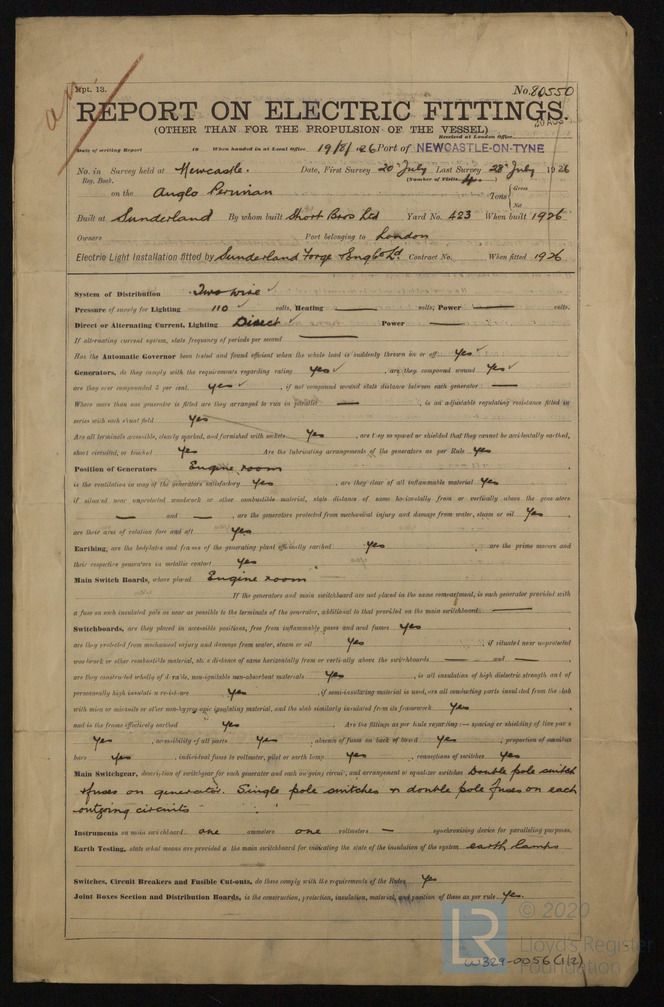 Rpt. 13.
No. 80550
REPORT ON ELECTRIC FITTINGS.
(OTHER THAN FOR THE PROPULSION OF THE VESSEL)
Received at London Office
Date of writing Report 19 When handed in at Local Office 19/8/26 Port of NEWCASTLE-ON-TYNE
No. in Survey held at Newcastle. Date, First Survey 20th July Last Survey 28th July 1926
Reg. Book. (Number of Visits 4)
on the Anglo Peruvian Tons { Gross
Net
Built at Sunderland By whom built Short Bros Ltd Yard No. 423 When built 1926
Owners Port belonging to London
Electric Light Installation fitted by Sunderland Forge & Eng Co Ld Contract No. When fitted 1926
System of Distribution Two wire
Pressure of supply for Lighting 110 volts, Heating — volts, Power — volts.
Direct or Alternating Current, Lighting Direct Power —
If alternating current system, state frequency of periods per second —
Has the Automatic Governor been tested and found efficient when the whole load is suddenly thrown on or off: Yes
Generators, do they comply with the requirements regarding rating Yes, are they compound wound Yes
are they over compounded 5 per cent. yes, if not compound wound state distance between each generator —
Where more than one generator is fitted are they arranged to run in parallel —, is an adjustable regulating resistance fitted in
series with each shunt field yes
Are all terminals accessible, clearly marked, and furnished with sockets Yes, are they so spaced or shielded that they cannot be accidentally earthed,
short circuited, or touched Yes Are the lubricating arrangements of the generators as per Rule Yes
Position of Generators Engine room
is the ventilation in way of the generators satisfactory Yes, are they clear of all inflammable material Yes
if situated near unprotected woodwork or other combustible material, state distance of same horizontally from or vertically above the generators
— and —, are the generators protected from mechanical injury and damage from water, steam or oil Yes
are their axes of rotation fore and aft Yes
Earthing, are the bedplates and frames of the generating plant efficiently earthed Yes are the prime movers and
their respective generators in metallic contact Yes
Main Switch Boards, where placed Engine room
If the generators and main switchboard are not placed in the same compartment, is each generator provided with
a fuse on each insulated pole as near as possible to the terminals of the generator, additional to that provided on the main switchboard: —
Switchboards, are they placed in accessible positions, free from inflammable gases and acid fumes Yes
are they protected from mechanical injury and damage from water, steam or oil Yes, if situated near unprotected
woodwork or other combustible material, state distance of same horizontally from or vertically above the switchboards — and —
are they constructed wholly of durable, non-ignitable non-absorbent materials Yes, is all insulation of high dielectric strength and of
permanently high insulation resistance Yes, if semi-insulating material is used, are all conducting parts insulated from the slab
with mica or micanite or other non-hygroscopic insulating material, and the slab similarly insulated from its framework Yes
and is the frame effectively earthed Yes Are the fittings as per Rule regarding:— spacing or shielding of live parts
Yes, accessibility of all parts Yes, absence of fuses on back of board Yes, proportion of omnibus
bars Yes, individual fuses to voltmeter, pilot or earth lamp Yes, connections of switches Yes
Main Switchgear, description of switchgear for each generator and each outgoing circuit, and arrangement of equalizer switches Double pole switch
& fuses on generator. Single pole switches & double pole fuses on each
outgoing circuits
Instruments on main switchboard one ammeters one voltmeters — synchronising device for paralleling purposes.
Earth Testing, state what means are provided at the main switchboard for indicating the state of the insulation of the system earth lamps
Switches, Circuit Breakers and Fusible Cut-outs, do these comply with the requirements of the Rules Yes
Joint Boxes Section and Distribution Boards, is the construction, protection, insulation, material, and position of these as per rule Yes.
LR
© 2020
Lloyd's Register
Foundation
W329-0056 (1/2)